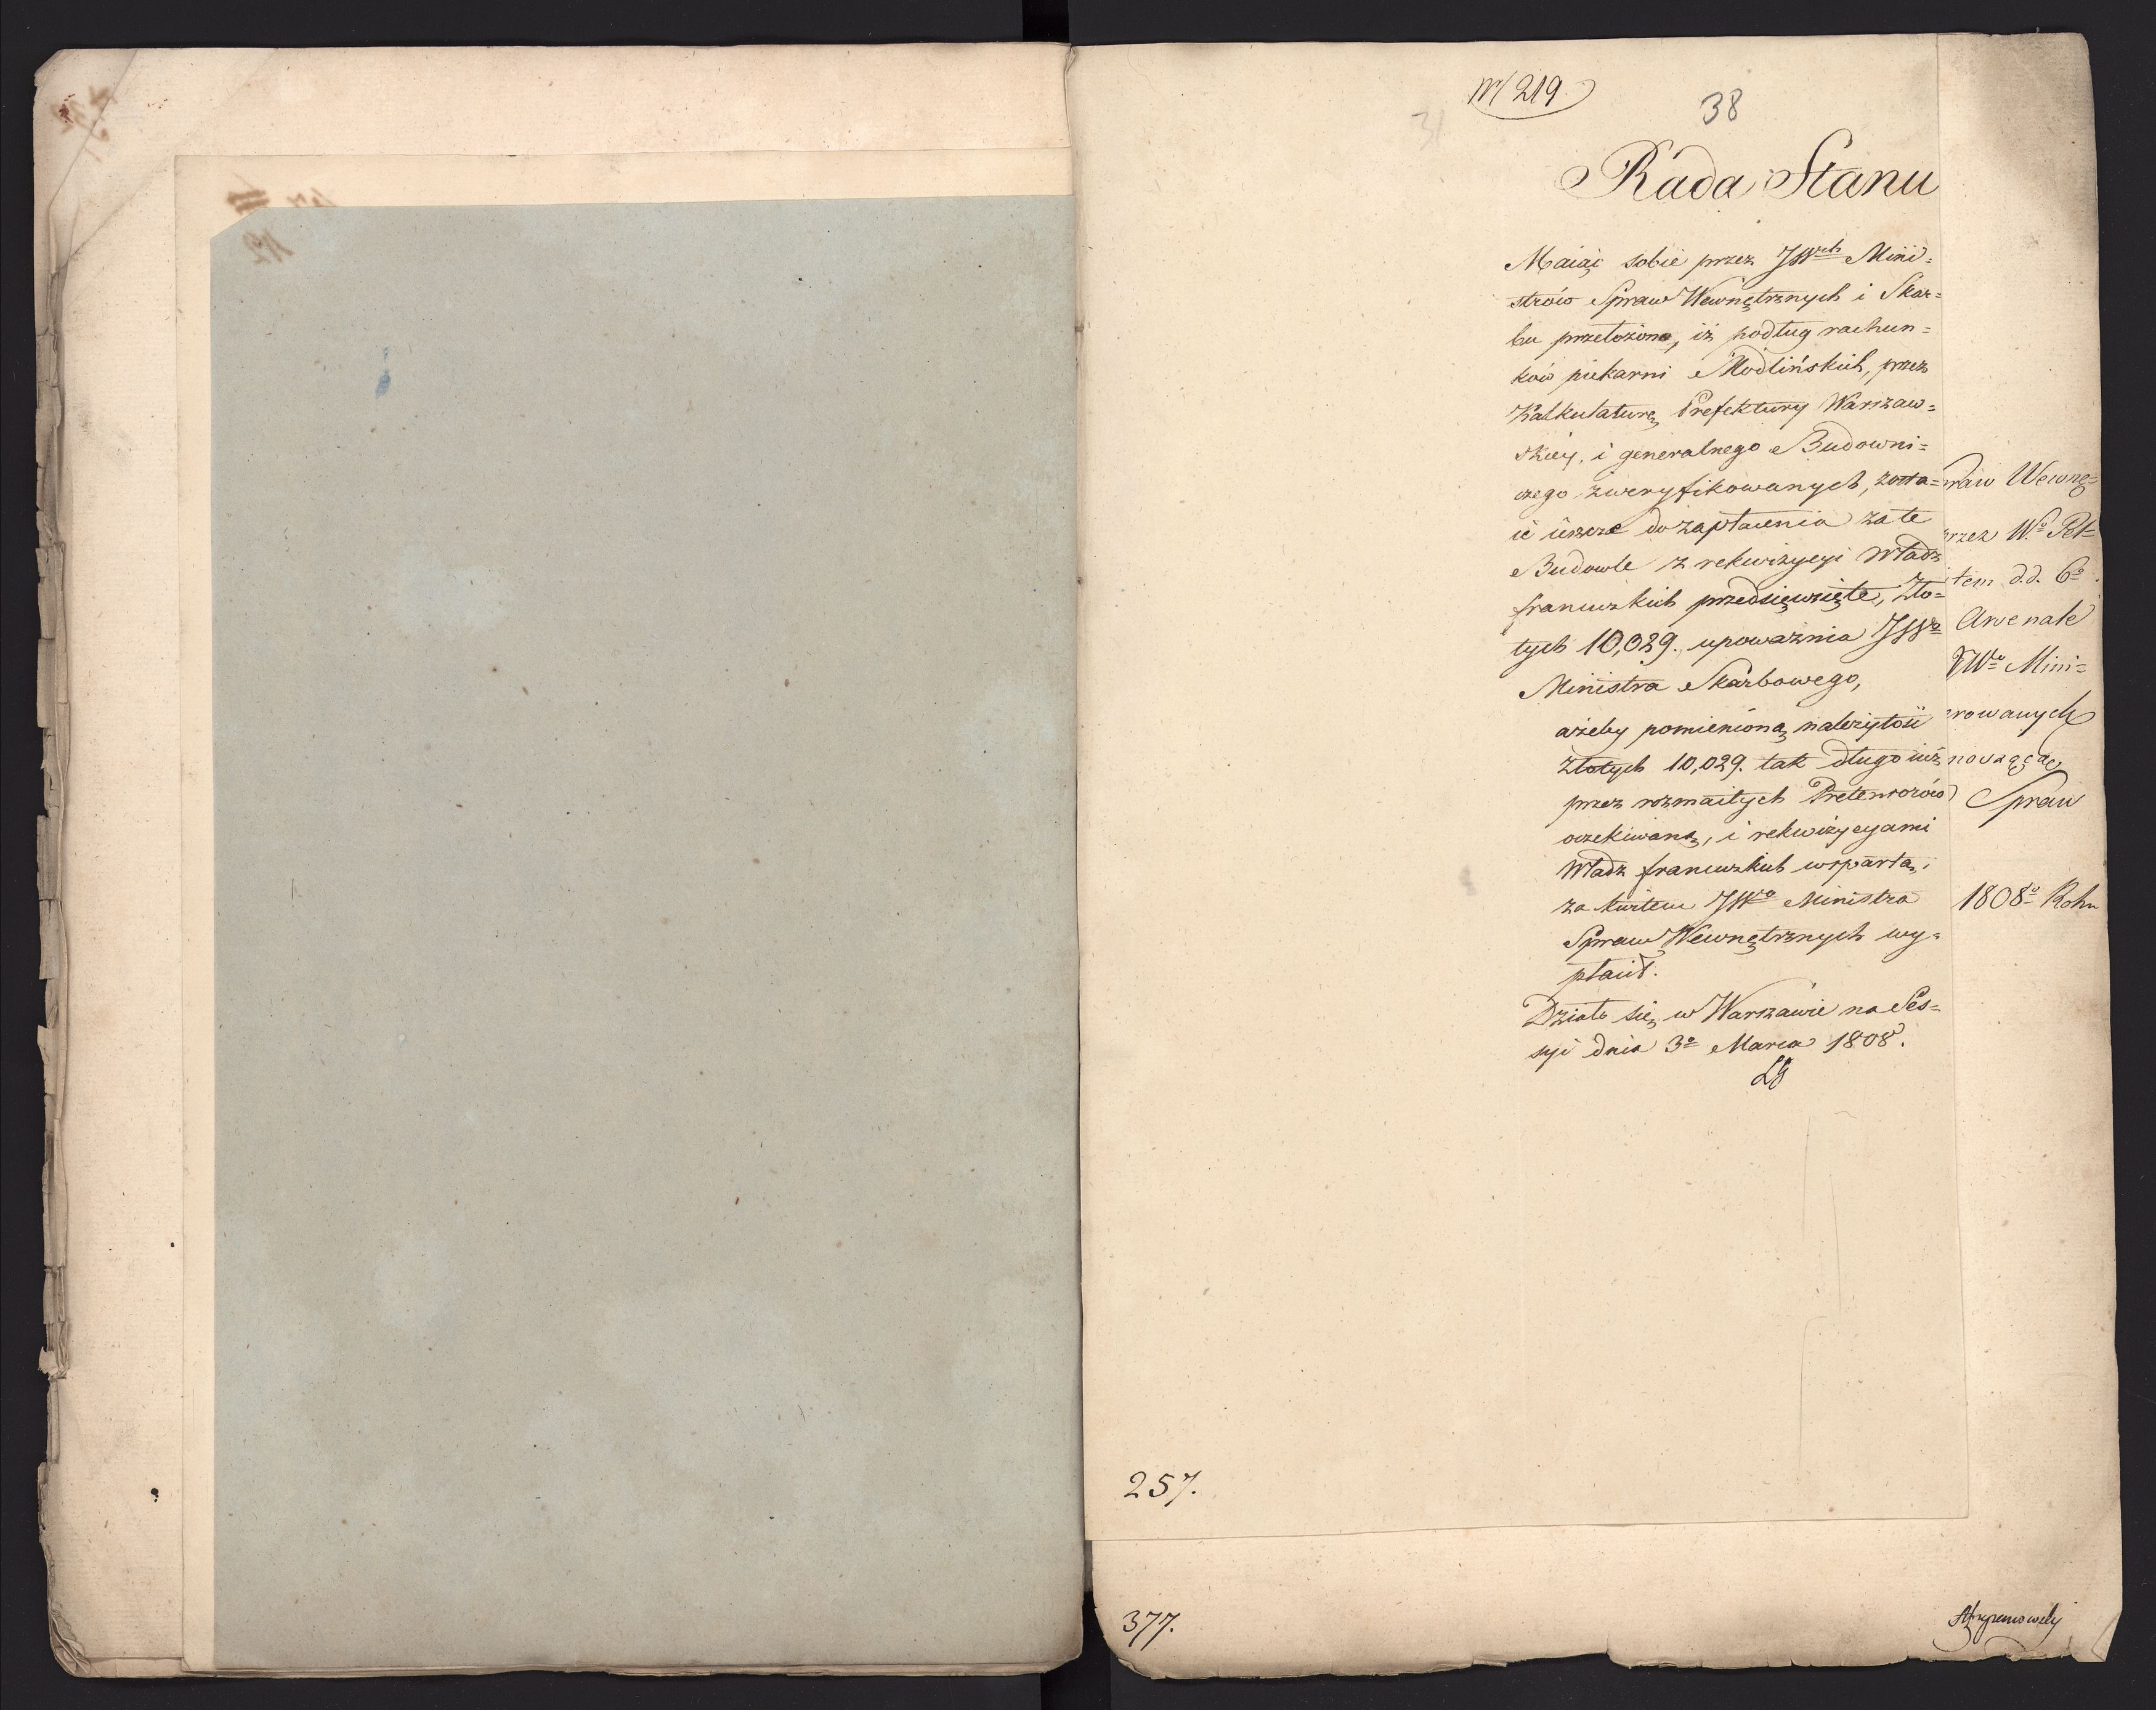 M 219
38
31
Rada Stanu
Maiąc sobie przez JWch Mini=
strów Spraw Wewnętrznych i Skar=
bu przełożone, iż podług rachun=
ków piekarni Modlińskich, przez
Kalkulaturę Prefektury Warszaw=
skiey, i generalnego Budowni=
czego zweryfikowanych, zosta=
ie ieszcze do zapłacenia za te
Budowle z rekwizycyi Władz
francuzkich przedsięwzięte, Zło=
tych 10,029. upoważnia JWo
Ministra Skarbowego,
ażeby pomienioną należytość
Złotych 10,029. tak długo iuż
przez rozmaitych Pretensorów
oczekiwaną, i rekwizycyami
Władz francuzkich wspartą,
za kwitem JWo Ministra
Spraw Wewnętrznych wy=
płacił.
Działo się w Warszawie na Ses=
syi dnia 3o Marca 1808.
LG
praw Wewnę=
przez Wo Pot=
tem d.d. 6o
JWo Mini=
rowanych
Spraw
1808o Roku
257.
377.